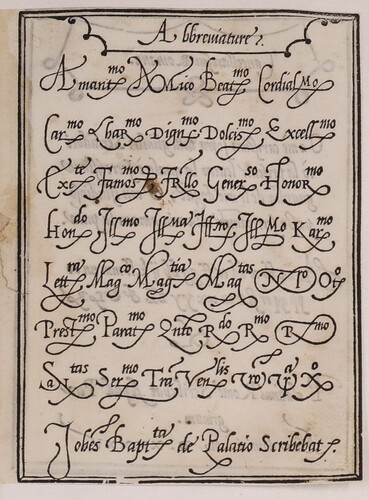 Abbreviature.
Amant.mo Amico Beat.mo Cordial.mo
Car.mo Char.mo Dign.mo Dolcis.mo Excell.mo
Ex.te Famos.mo Frllo Gener.so Honor.mo
Hon.do Ill.mo Ill.ma Ill.mo Kar.mo
Lett.ra Mag.co Mag.tia Mag.tas N.ro
Prest.mo Parat.mo Qnto R.do R.mo R.mo
S.tas Ser.mo Tra Ven.lis
Johes Bapt.ta de Palatio Scribebat.